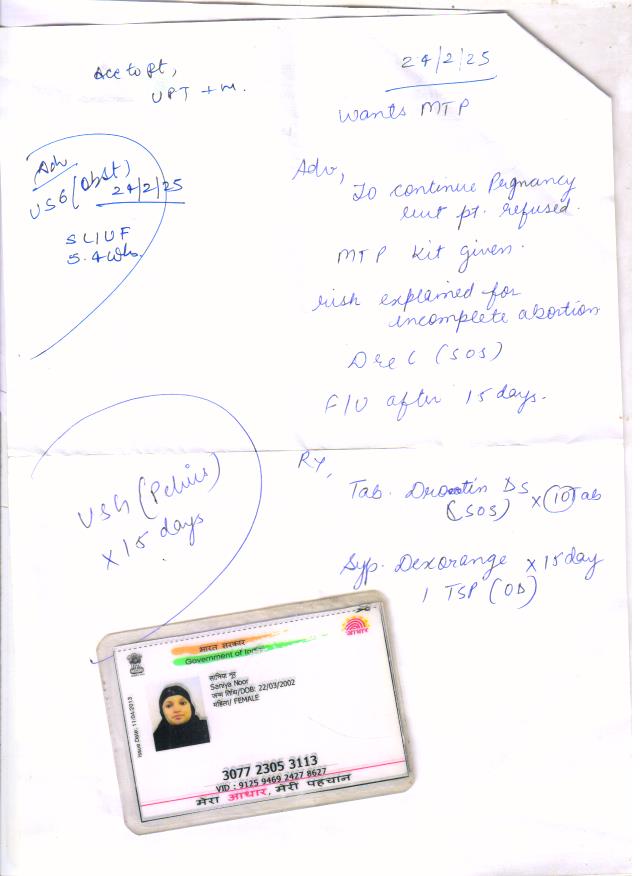 Acc to pt,
UPT +ve.
Adv
USG (Obst)
24/2/25
SLIUF
5.4 Wks
24/2/25
Wants MTP
Adv,
To continue Pregnancy
but pt. refused.
MTP kit given.
risk explained for
incomplete abortion
(SOS)
F/U after 15 days.
USG (Pelvis)
x 15 days
Rx,
Tab. Drotin DS x 10 Tab
(SOS)
Syp. Dexorange x 15 day
1 TSP (OD)
भारत सरकार
Government of India
आधार
सानिया नूर
Saniya Noor
जन्म तिथि/DOB: 22/03/2002
महिला/ FEMALE
Issue Date: 11/04/2013
3077 2305 3113
VID : 9125 9469 2427 8627
मेरा आधार, मेरी पहचान